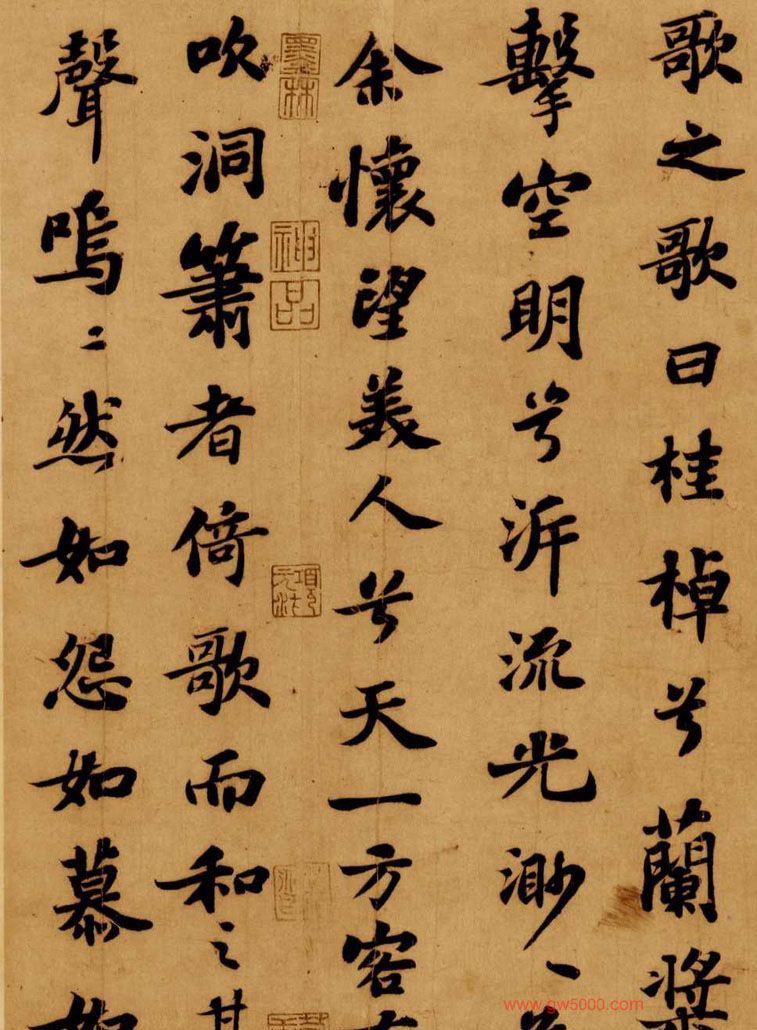 歌之歌曰桂棹兮蘭槳
擊空明兮泝流光渺〻兮
余懷望美人兮天一方客有
吹洞簫者倚歌而和之其
聲嗚〻然如怨如慕如
墨林
神品
www.gw5000.com